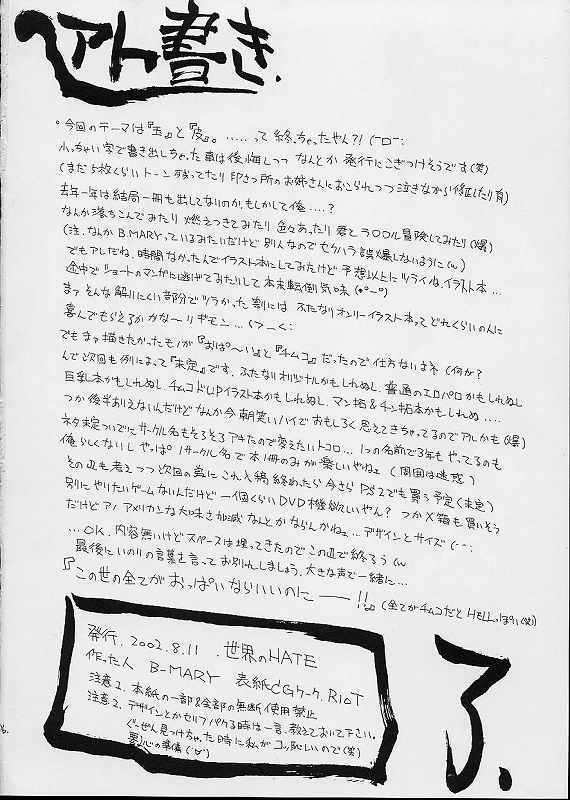 アト書き.
。今回のテーマは『玉』と『皮』。……って終っちゃったやん?! (-ロ-;
小っちゃい字で書き出しちゃった事は後悔しつつ なんとか発行にこぎつけそうです(笑)
(まだ5枚くらいトーン残ってたり 印さつ所のお姉さんにおこられつつ泣きながら修正したり有)
去年一年は結局一冊も出してないのか。もしかして俺…..?
なんか落ちこんでみたり 燃えつきてみたり 色々あったり 愛とラ〇〇ル冒険してみたり(爆)
(注、なんかB.MARYっているみたいだけど別人なのでセクハラ誤爆しないように(w)
でもアレだね、時間なかったんでイラスト本にしてみたけど 予想以上にツライね、イラスト本…
途中でショートのマンガに逃げてみたりして本末転倒気味
まァそんな解りにくい部分でツラかった割には ふたなりオンリーイラスト本って どれくらいの人に
喜んでもらえるかかな〜リギモン…
でもまァ描きたかったモノが『おぱ〜い』と『チムコ』だったので仕方ないよネ(何が?
んで次回も例によって『未定』です、ふたなりオリジナルかもしれぬし、普通のエロパロかもしれぬし
巨乳本かもしれぬし チムコドUPイラスト本かもしれぬし、マン拓&チン拓本かもしれぬ….
つか後半ありえないんだけど なんか今朝笑いハイで おもしろく思えてきちゃってるのでアルかも(爆)
ネタ未定ついでにサークル名もそろそろアキたので変えたいトコロ… 1つの名前で3年もやってるのも
俺らしくないし やっぱ1サークル名で本1冊のみが楽しいやねェ (周囲は迷惑)
その辺も考えつつ次回の為に これ入稿終わったら今さらPS2でも買う予定(未定)
別にやりたいゲームないんだけど 一個くらいDVD機欲しいやん? つかX箱も買いそう
だけどアノ アメリカンな大味さ加減なんとかならんかねェ…デザインとサイズ(--;
…OK、内容無いけどスペースは埋ってきたのでこの辺で終ろう(w
最後にいのりの言葉を言ってお別れしましょう、大きな声で一緒に…
『この世の全てがおっぱいならいいのに――!!』(全てがチムコだとHELLっぽい(笑))
発行. 2002.8.11 .世界のHATE
作った人 B-MARY 表紙CGワーク. RIOT
注意1. 本紙の一部&全部の無断使用禁止
注意2. デザインとかセリフパクる時は一言、教えておいて下さい。
ぐーぜん見つけちゃった時に私がコッ恥しいので(笑)
要・心の準備(´∀`)
了.